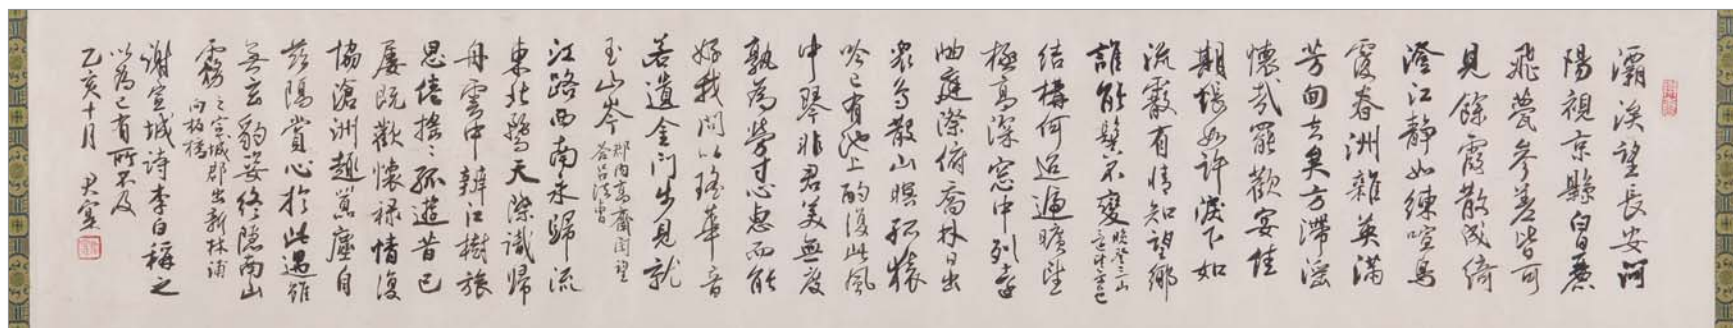 灞涘望長安河
陽視京縣白日麗
飛甍參差皆可
見餘霞散成綺
澄江靜如練喧鳥
覆春洲雜英滿
芳甸去矣方滯淫
懷哉罷歡宴佳
期悵如許淚下如
流霰有情知望鄉
誰能鬒不變 晚登三山
還望京邑
結構何迢遰曠望
極高深窓中列遠
岫庭際俯喬林日出
衆鳥散山暝孤猿
吟已有池上酌復此風
中琴非君美無度
孰為勞寸心惠而能
好我問以瑤華音
若遺金門步見就
玉山岑 郡內高齋閒望
答呂法曹
江路西南永歸流
東北騖天際識歸
舟雲中辨江樹旅
思倦搖〻孤遊昔已
屢既歡懷祿情復
協滄洲趣囂塵自
茲隔賞心於此遇雖
無玄豹姿終隱南山
霧 之宣城郡出新林浦
向板橋
謝宣城詩李白稱之
以為已有所不及
乙亥十月 尹